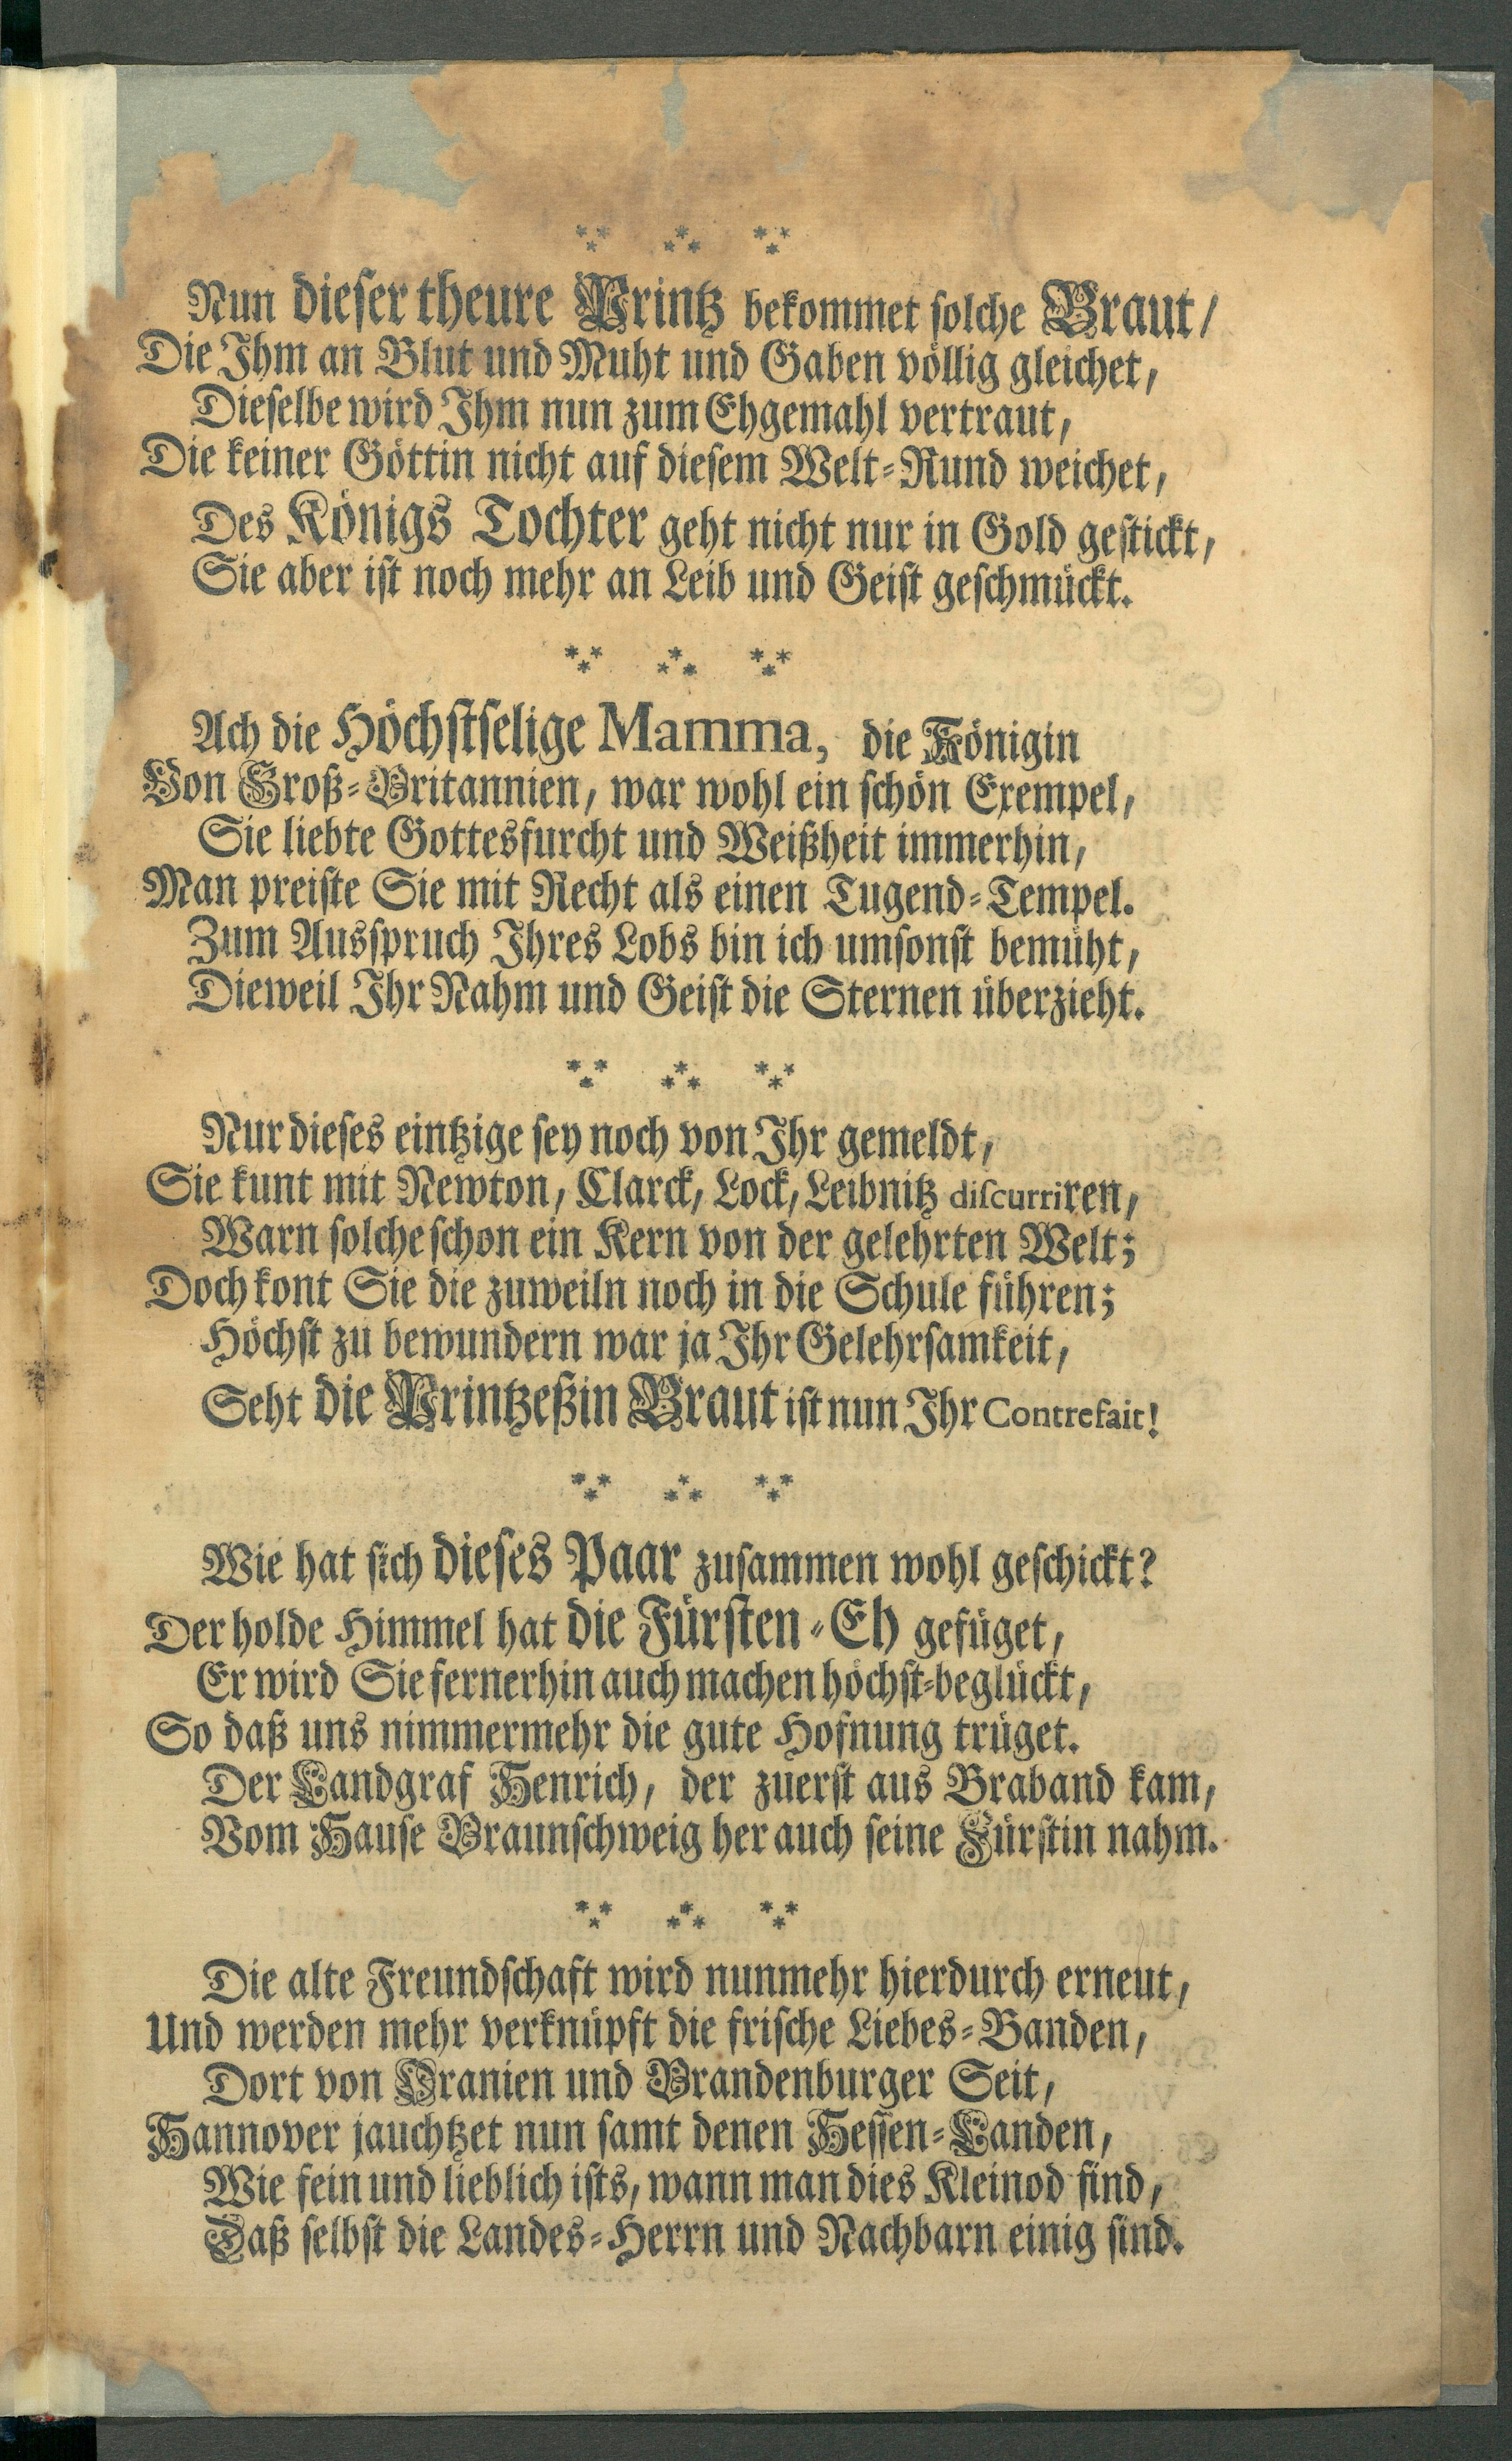 Nun dieser theure Printz bekommet solche Braut/
Die Ihm an Blut und Muht und Gaben völlig gleichet,
Dieselbe wird Ihm nun zum Ehgemahl vertraut,
Die keiner Göttin nicht auf diesem Welt-Rund weichet,
Des Königs Tochter geht nicht nur in Gold gestickt,
Sie aber ist noch mehr an Leib und Geist geschmückt.
Ach die Höchstselige Mamma, die Königin
Von Groß-Britannien, war wohl ein schön Exempel,
Sie liebte Gottesfurcht und Weißheit immerhin,
Man preiste Sie mit Recht als einen Tugend-Tempel.
Zum Ausspruch Ihres Lobs bin ich umsonst bemüht,
Dieweil Ihr Nahm und Geist die Sternen überzieht.
Nur dieses eintzige sey noch von Ihr gemeldt,
Sie kunt mit Newton, Clarck, Lock, Leibnitz discurriren,
Warn solche schon ein Kern von der gelehrten Welt;
Doch kont Sie die zuweiln noch in die Schule führen;
Höchst zu bewundern war ja Ihr Gelehrsamkeit,
Seht die Printzeßin Braut ist nun Ihr Contrefait!
Wie hat sich dieses Paar zusammen wohl geschickt?
Der holde Himmel hat die Fürsten-Eh gefüget,
Er wird Sie fernerhin auch machen höchst-beglückt,
So daß uns nimmermehr die gute Hofnung trüget.
Der Landgraf Henrich, der zuerst aus Braband kam,
Vom Hause Braunschweig her auch seine Fürstin nahm.
Die alte Freundschaft wird nunmehr hierdurch erneut,
Und werden mehr verknüpft die frische Liebes-Banden,
Dort von Oranien und Brandenburger Seit,
Hannover jauchtzet nun samt denen Hessen-Landen,
Wie fein und lieblich ists, wann man dies Kleinod find,
Daß selbst die Landes-Herrn und Nachbarn einig sind.